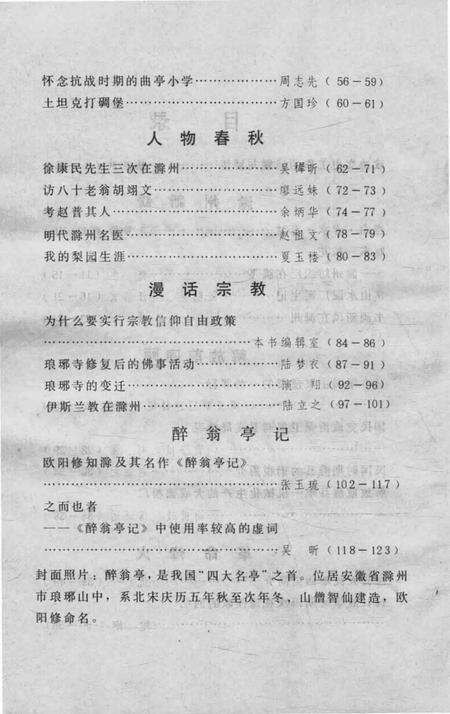 怀念抗战时期的曲亭小学………………周志先（56－59）
土坦克打碉堡………………………………方国珍（60－61）
人物春秋
徐康民先生三次在滁州……………………吴穉昕（62－71）
访八十老翁胡翊文…………………………廖远妹（72－73）
考赵普其人…………………………………余炳华（74－77）
明代滁州名医………………………………赵祖文（78－79）
我的梨园生涯………………………………夏玉楼（80－83）
漫话宗教
为什么要实行宗教信仰自由政策
………………………………………本书编辑室（84－86）
琅琊寺修复后的佛事活动…………………陆梦衣（87－91）
琅琊寺的变迁………………………………翔（92－96）
伊斯兰教在滁州……………………………陆立之（97－101）
醉翁亭记
欧阳修知滁及其名作《醉翁亭记》
………………………………………张玉珑（102－117）
之而也者
——《醉翁亭记》中使用率较高的虚词
………………………………………吴 昕（118－123）
封面照片：醉翁亭，是我国“四大名亭”之首。位居安徽省滁州
市琅琊山中，系北宋庆历五年秋至次年冬，山僧智仙建造，欧
阳修命名。